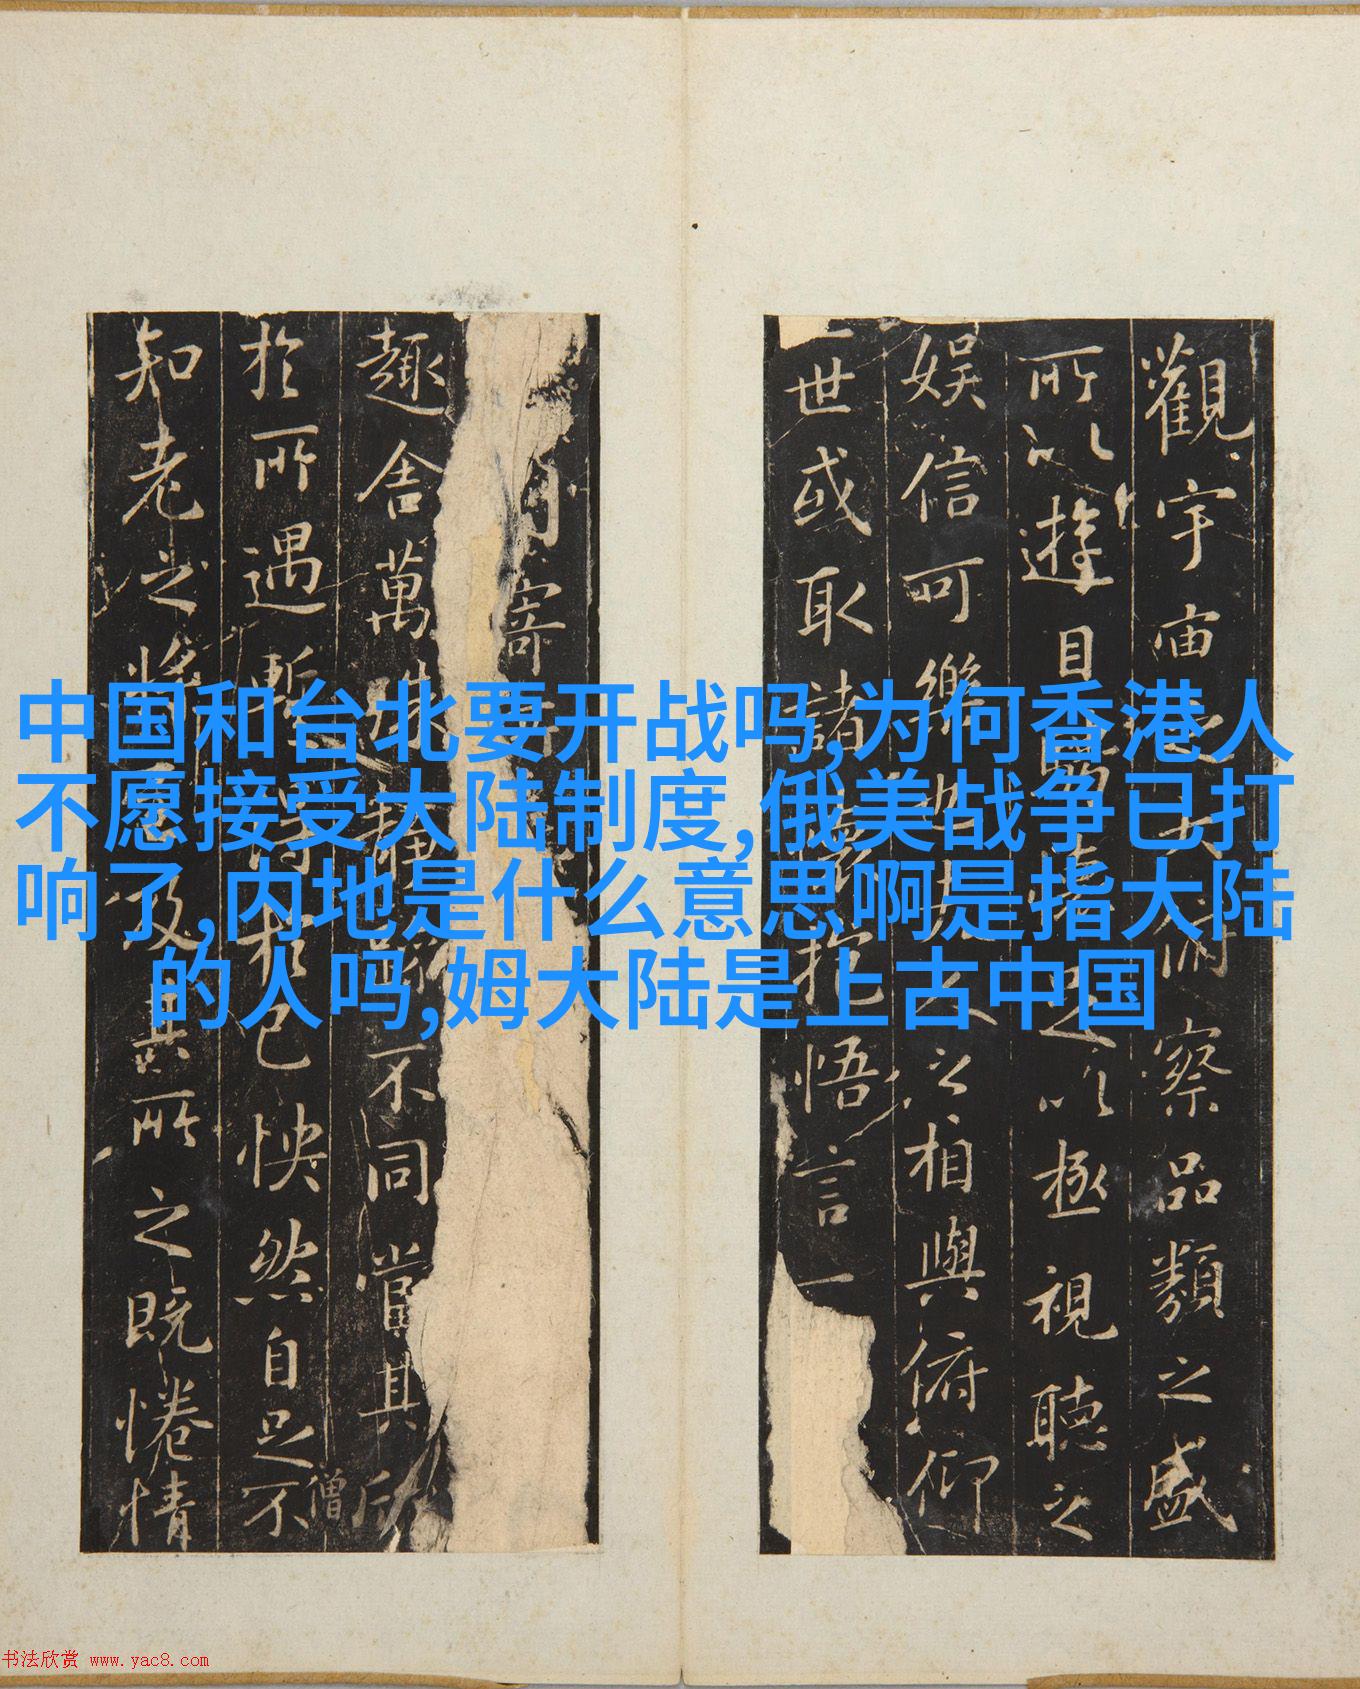 中国和台北要开战吗,为何香港人
不愿接受大陆制度,俄美战争已打
响了,内地是什么意思啊是指大陆
的人吗,姆大陆是上古中国
觀宇宙之大俯察品類之盛
所以遊目騁懷足以極視聽之
娛信可樂也夫人之相與俯仰
一世或取諸懷抱悟言一
寄所
趣舍萬殊靜躁不同當其欣
僧
於所遇暫得於己怏然自足不
知老之將至及其所之既惓情
书法欣赏 www.yac8.com